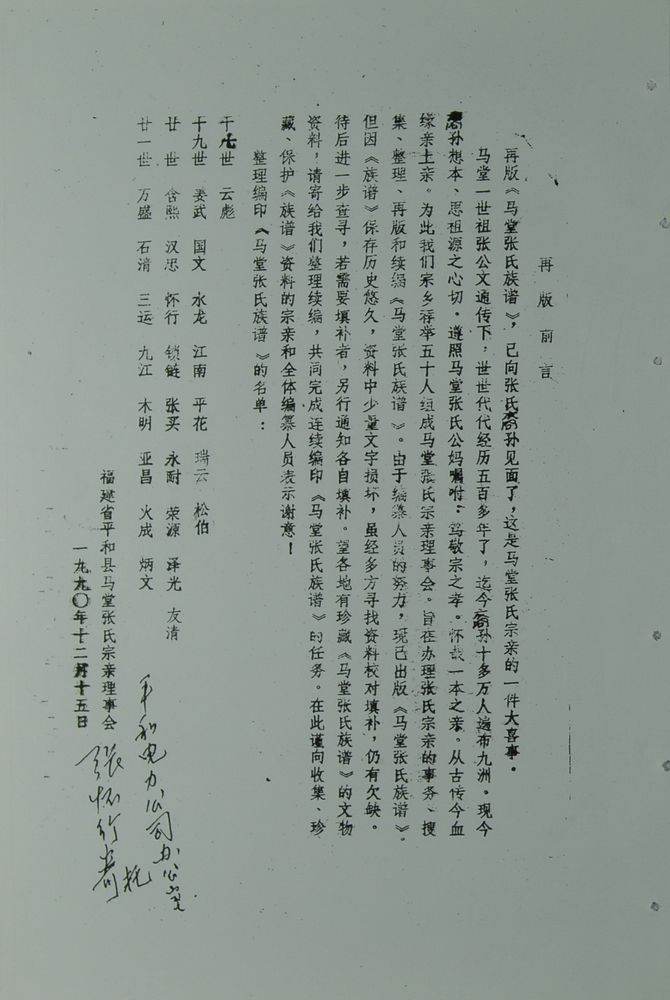 再版前言
再版《马堂张氏族谱》，已向张氏裔孙见面了，这是马堂张氏宗亲的一件大喜事。
马堂一世祖张公文通传下，世世代代经历五百多年了，迄今裔孙十多万人遍布九洲。现今
裔孙想本、思祖源之心切。遵照马堂张氏公妈嘱咐：笃敬宗之孝。怀哉一本之亲。从古传今血
缘亲上亲。为此我们宗乡荐举五十人组成马堂张氏宗亲理事会。旨在办理张氏宗亲的事务、搜
集、整理、再版和续编《马堂张氏族谱》。由于编纂人员的努力，现已出版《马堂张氏族谱》。
但因《族谱》保存历史悠久，资料中少量文字损坏，虽经多方寻找资料校对填补，仍有欠缺。
待后进一步查寻，若需要填补者，另行通知各自填补。望各地有珍藏《马堂张氏族谱》的文物
资料，请寄给我们整理续编，共同完成连续编印《马堂张氏族谱》的任务。在此谨向收集、珍
藏、保护《族谱》资料的宗亲和全体编纂人员表示谢意！
整理编印《马堂张氏族谱》的名单：
十七世 云彪
十九世 姜武 国文 水龙 江南 平花 瑞云 松伯
廿世 含熙 汉忠 怀行 锁链 张买 永耐 荣源 泽光 友清
廿一世 万盛 石清 三运 九江 木明 亚昌 火成 炳文
福建省平和县马堂张氏宗亲理事会
一九九〇年十二月十五日
平和电力公司办公室
张怀行